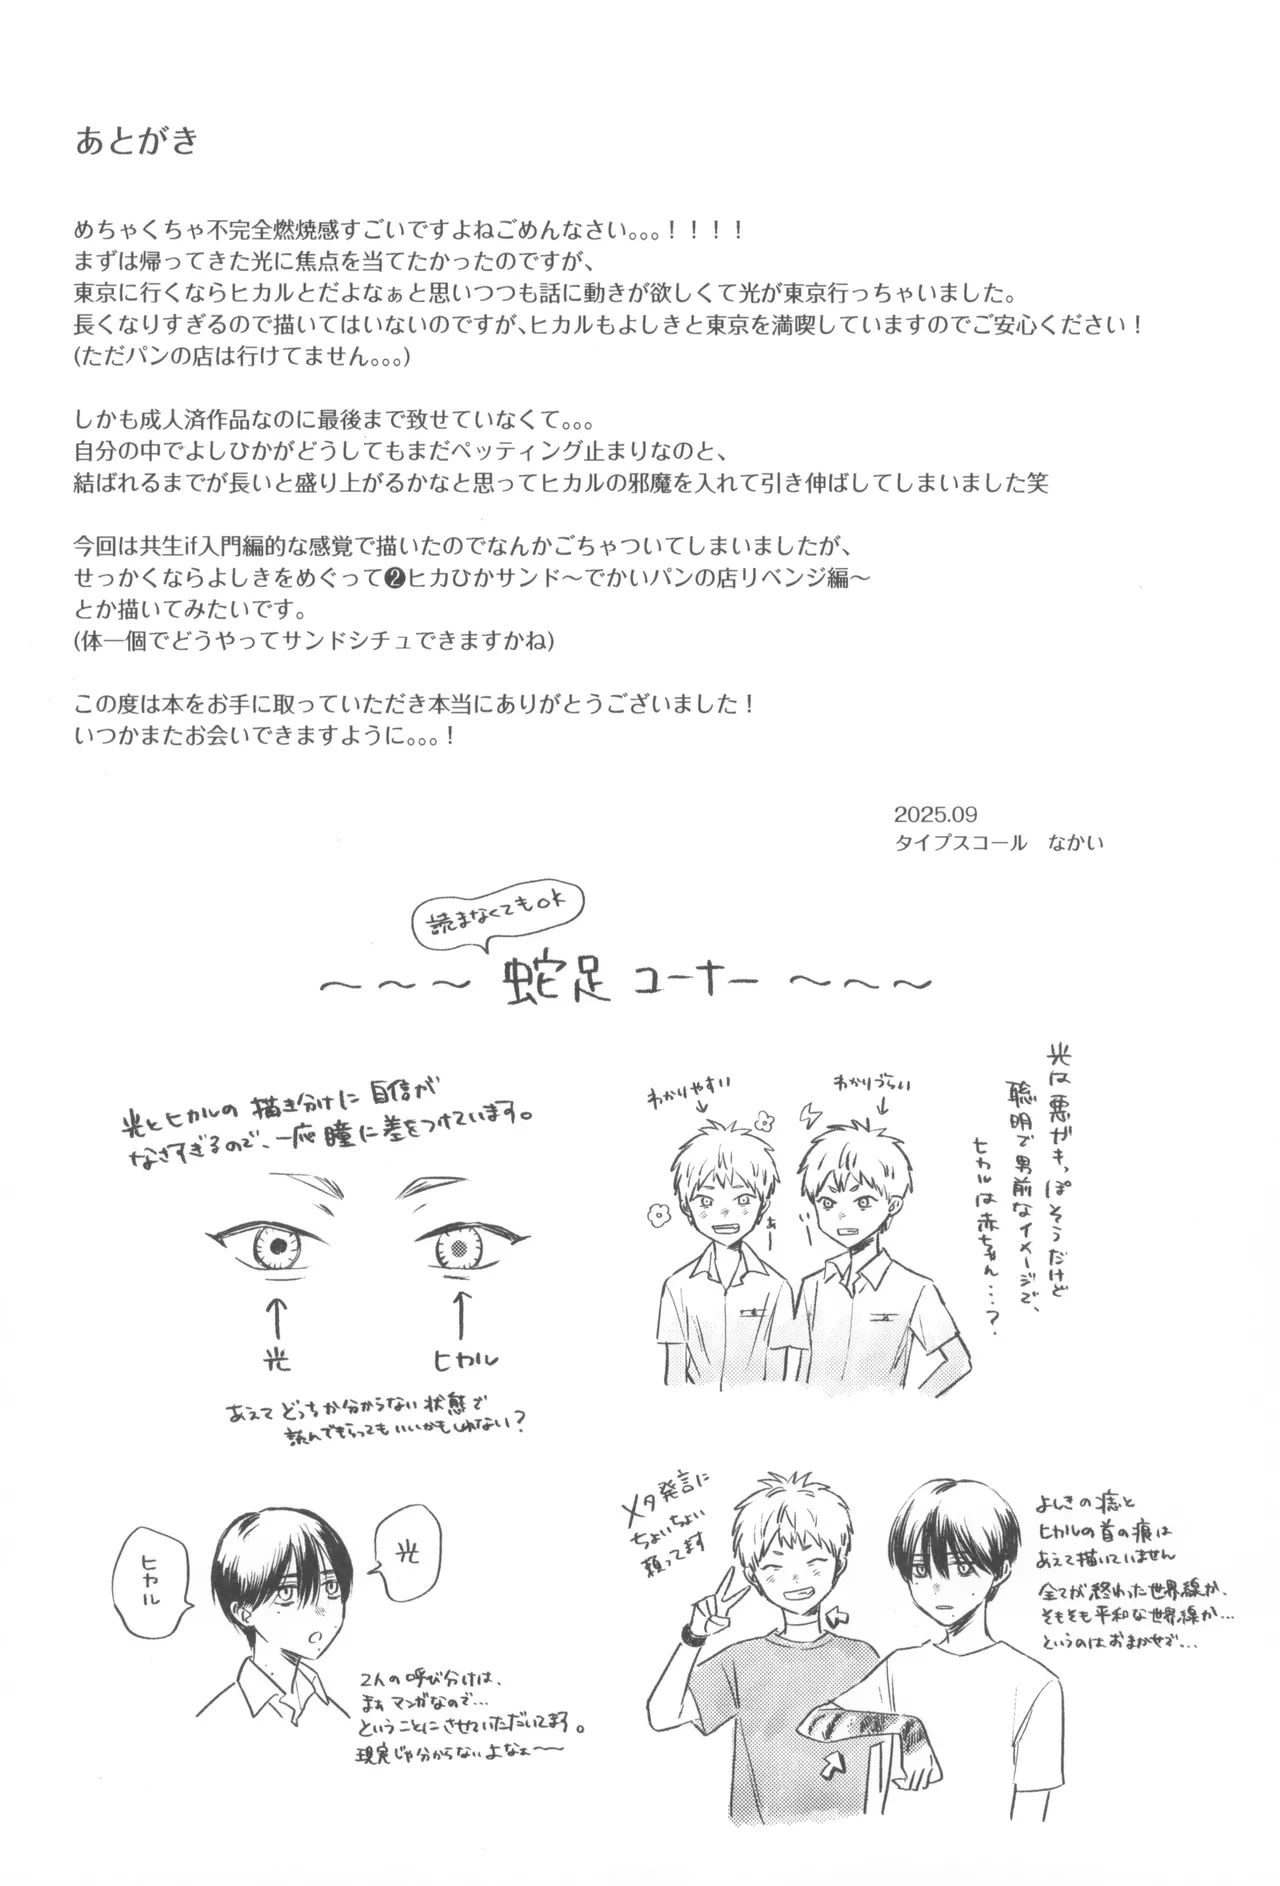 あとがき
めちゃくちゃ不完全燃焼感すごいですよねごめんなさい｡｡｡！！！！
まずは帰ってきた光に焦点を当てたかったのですが、
東京に行くならヒカルとだよなぁと思いつつも話に動きが欲しくて光が東京行っちゃいました。
長くなりすぎるので描いてはいないのですが、ヒカルもよしきと東京を満喫していますのでご安心ください！
(ただパンの店は行けてません｡｡｡)
しかも成人済作品なのに最後まで致せていなくて｡｡｡
自分の中でよしひかがどうしてもまだペッティング止まりなのと、
結ばれるまでが長いと盛り上がるかなと思ってヒカルの邪魔を入れて引き伸ばしてしまいました笑
今回は共生if入門編的な感覚で描いたのでなんかごちゃついてしまいましたが、
せっかくならよしきをめぐって❷ヒカひかサンド～でかいパンの店リベンジ編～
とか描いてみたいです。
(体一個でどうやってサンドシチュできますかね)
この度は本をお手に取っていただき本当にありがとうございました！
いつかまたお会いできますように｡｡｡！
2025.09
タイプスコール　なかい
読まなくてもOK
～～～ 蛇足コーナー ～～～
光とヒカルの描き分けに自信が
なさすぎるので、一応瞳に差をつけています。
光
ヒカル
あえてどっちか分からない状態で
読んでもらってもいいかもしれない？
わかりやすい
わかりづらい
光は悪ガキっぽそうだけど
聡明で男前なイメージで、
ヒカルは赤ちゃん…？
ヒカル
光
2人の呼び分けは、
まぁマンガなので…
ということにさせていただいてます。
現実じゃ分からないよなぁ〜〜
メタ発言に
ちょいちょい
頼ってます
よしきの痣と
ヒカルの首の痕は
あえて描いていません
全てが終わった世界線か、
そもそも平和な世界線か…
というのはおまかせで…